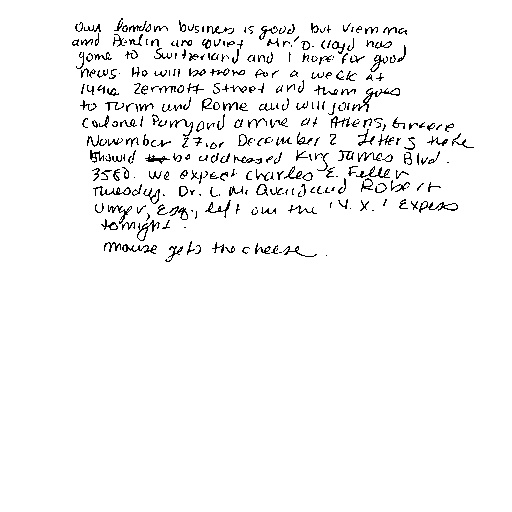 Our London business is good but Vienna
and Berlin are quiet. Mr. D. Lloyd has
gone to Switzerland and I hope for good
news. He will be there for a week at
1496 Zermott Street and then goes
to Turin and Rome and will join
Colonel Parry and arrive at Athens, Greece
November 27 or December 2. Letters there
should be addressed King James Blvd.
3580. We expect Charles E. Fuller
Tuesday. Dr. L. McQuaid and Robert
Unger, Esq., left on the 'Y.X.' Express
tonight.
mouse gets the cheese.